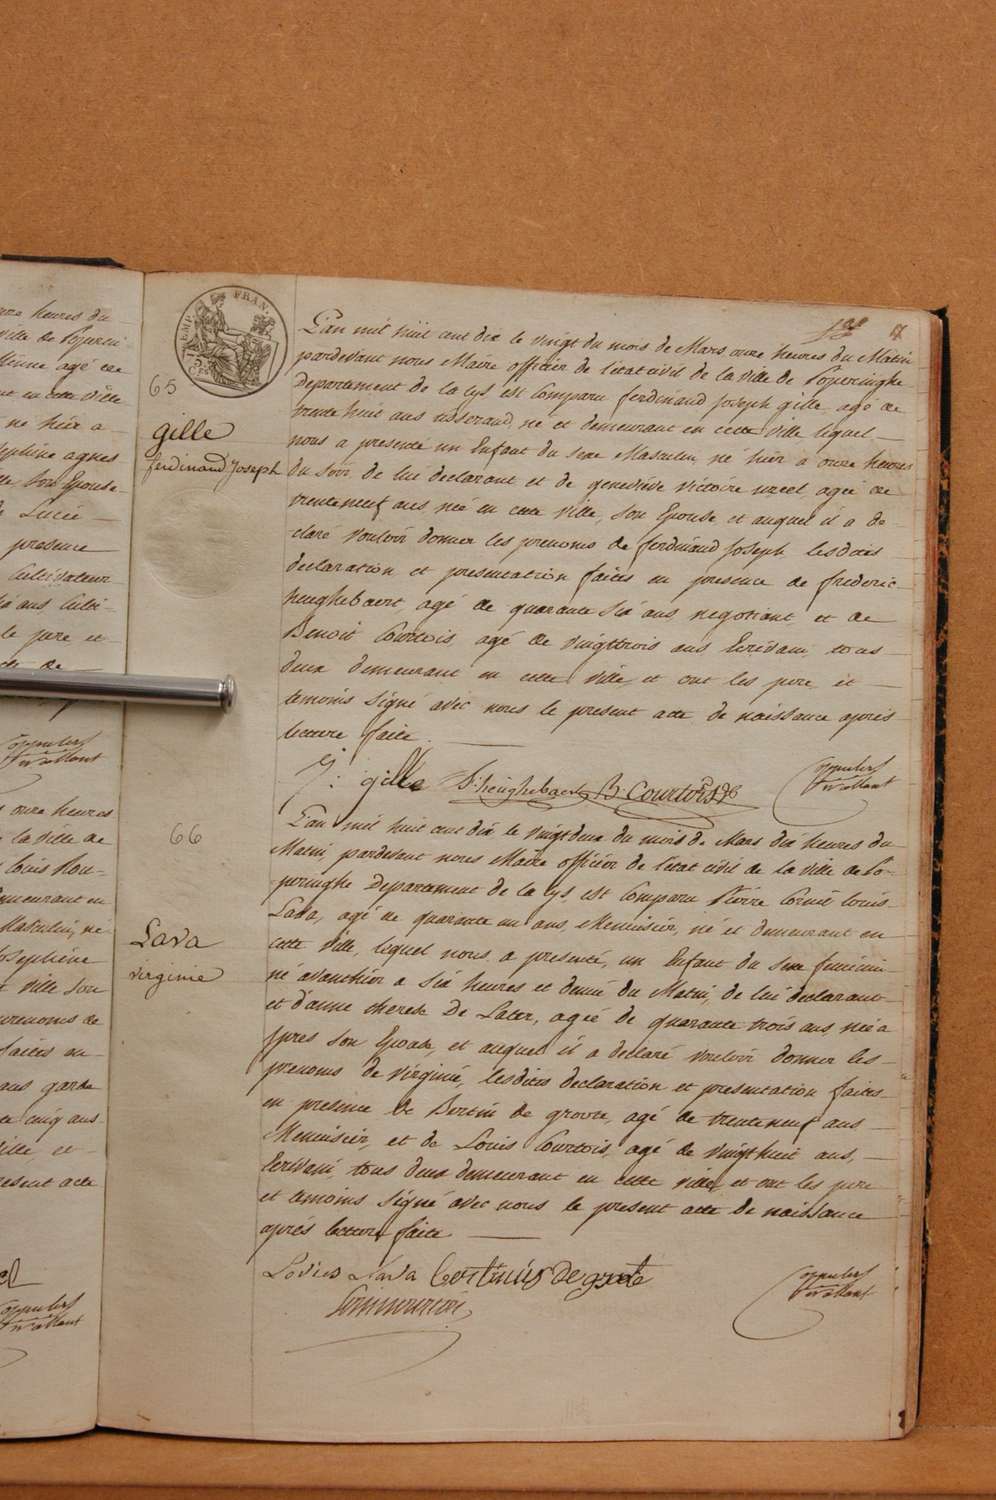 onze heures du
ville de Poperin
agé de
en cette ville
né hier a
agnes
son Epouse
de Lucie
presence
Cultivateur
six ans Culti-
le pere et
acte de
onze heures
la ville de
Louis
demeurant en
Masculin, né
Josephine
ville son
prenoms de
faites en
ans garde
cinq ans
ville et
present acte
TIMP. FRAN.
65
gille
ferdinand Joseph
L'an mil huit cent dix le vingt du mois de Mars onze heures du Matin
pardevant nous Maire officier de l'etat civil de la ville de Poperinghe
departement de la lys est comparu ferdinand Joseph gille agé de
trente huit ans tisserand, né et demeurant en cette ville lequel
nous a presenté un Enfant du sexe Masculin, né hier a onze heures
du soir, de lui declarant et de geneviève victoire agée de
trenteneuf ans, née en cette ville, son Epouse et auquel il a de-
claré vouloir donner les prenoms de ferdinand Joseph lesdites
declaration et presentation faites en presence de frederic
heughebaert, agé de quarante six ans negotiant et de
Benoit Courtois, agé de vingttrois ans Ecrivain, tous
deux demeurant en cette ville, et ont les pere et
temoins signé avec nous le present acte de naissance après
lecture faite.
J: gille F: heughebaert B: Courtois
66
Lava
virginie
L'an mil huit cent dix le vingtdeux du mois de Mars dix heures du
Matin, pardevant nous Maire officier de l'etat civil de la ville de Po-
peringhe departement de la lys est comparu Pierre Corneil Louis
Lava, agé de quarante un ans, Menuisier, né et demeurant en
cette ville, lequel nous a presenté, un Enfant du sexe feminin
né avanthier a six heures et demie du Matin, de lui declarant
et d'anne therese De Later, agée de quarante trois ans, née a
Ypres son Epouse, et auquel il a declaré vouloir donner les
prenoms de virginie, lesdites declaration et presentation faites
en presence de Bertin de groote, agé de trenteneuf ans
Menuisier, et de Louis Courtois, agé de vingthuit ans,
Ecrivain, tous deux demeurant en cette ville, et ont les pere
et temoins signé avec nous le present acte de naissance
après lecture faite
Lovies Lava Bertinus De groote